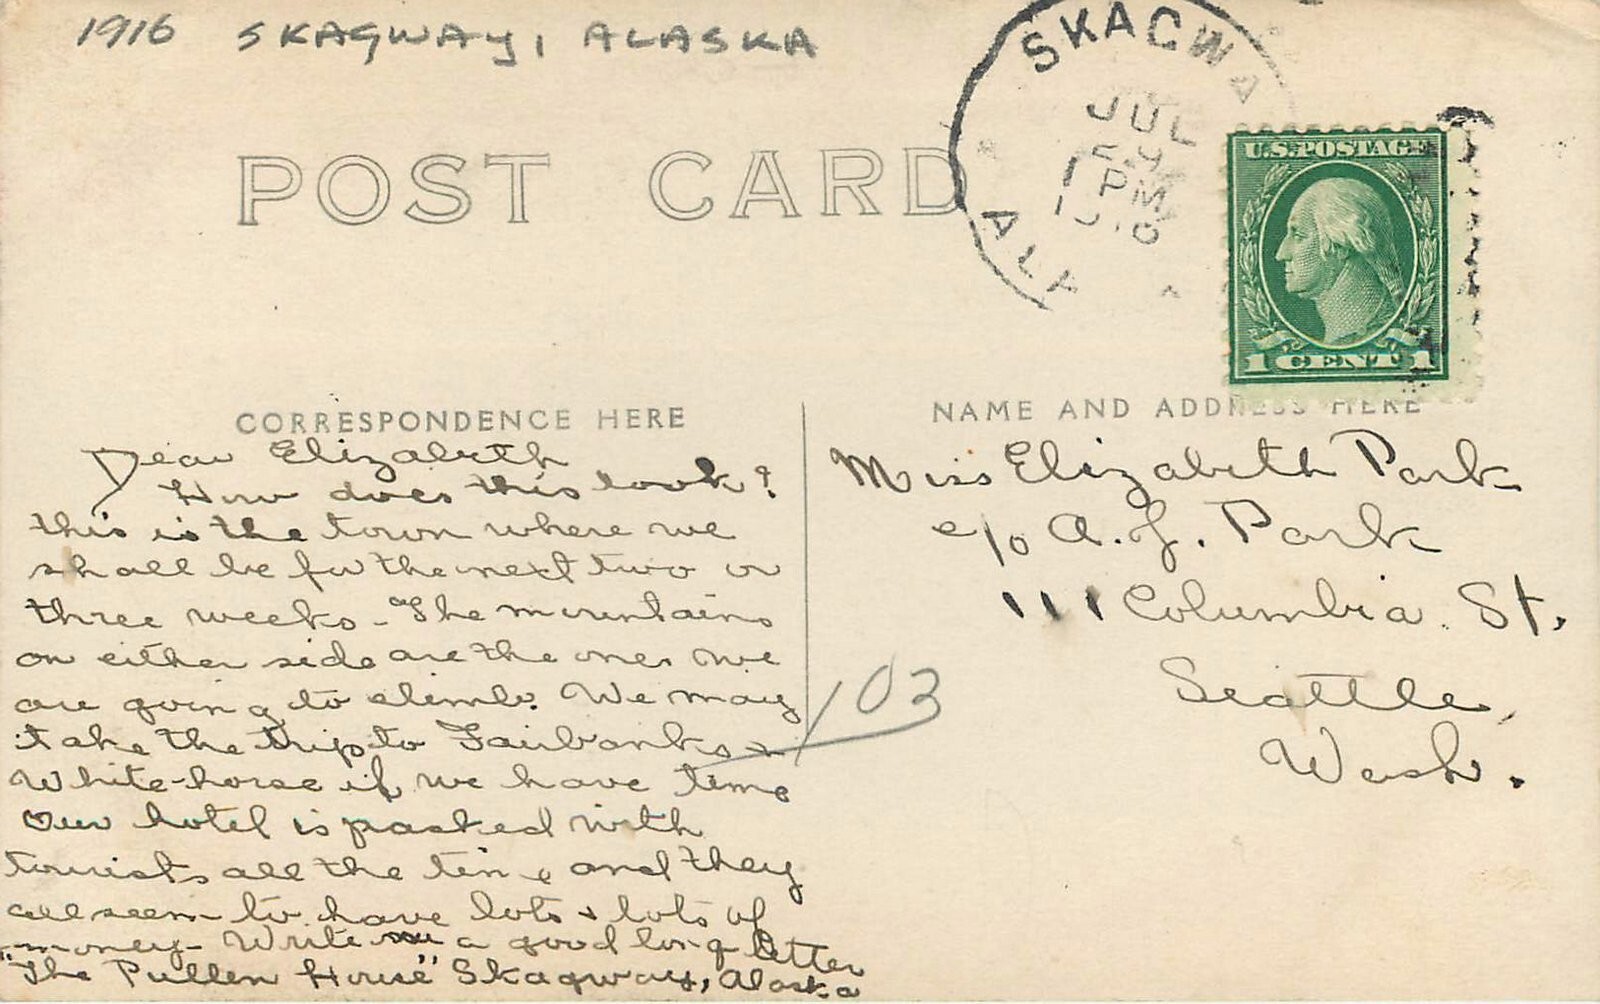 1916 SKAGWAY, ALASKA
SKAGWA
JUL
PM
ALA
POST CARD
U.S.POSTAGE
1 CENT 1
CORRESPONDENCE HERE
Dear Elizabeth
How does this look?
this is the town where we
shall be for the next two or
three weeks - The mountains
on either side are the ones we
are going to climb. We may
take the trip to Fairbanks &
White-horse if we have time
Our hotel is packed with
tourists all the time and they
all seem to have lots & lots of
money - Write me a good long letter
"The Pullen House" Skagway, Alaska
NAME AND ADDRESS HERE
Miss Elizabeth Park
c/o A. J. Park
111 Columbia St.
Seattle,
Wash.
103